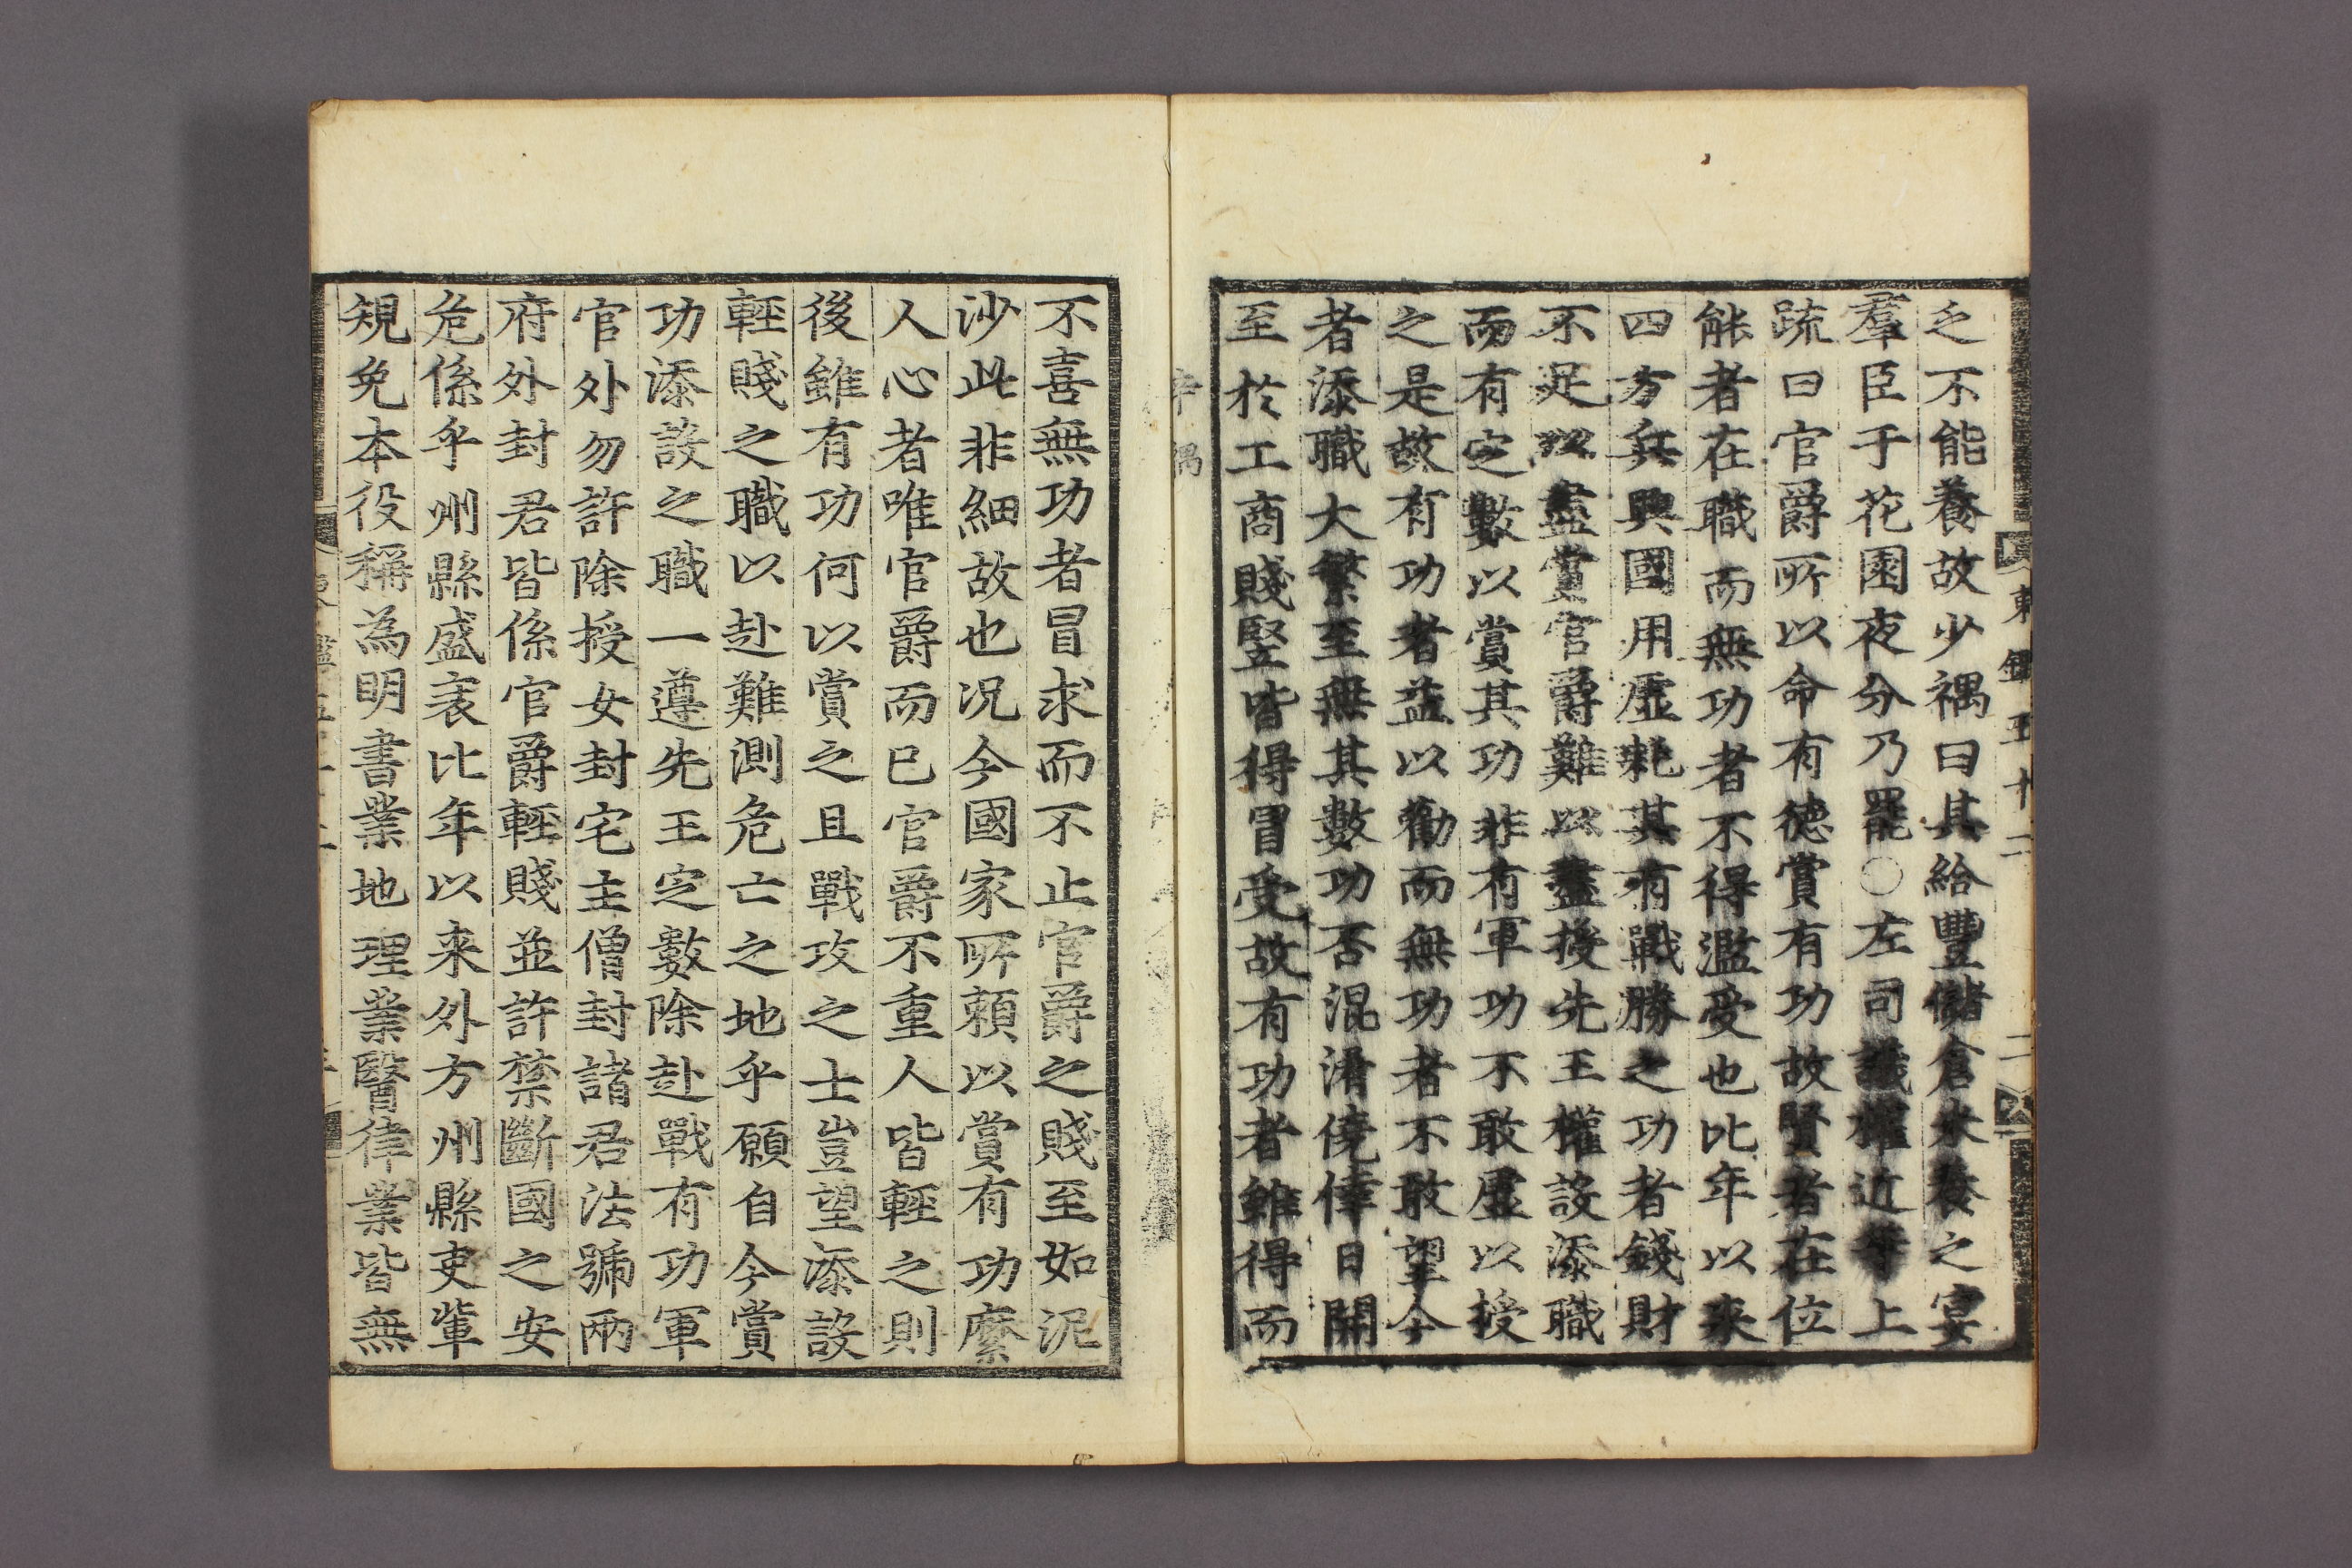 乏不能養故少禑曰其給豐儲倉米養之宴
羣臣于花園夜分乃罷○左司議權近等上
疏曰官爵所以命有德賞有功故賢者在位
能者在職而無功者不得濫受也比年以来
四方兵興國用虛耗其有戰勝之功者錢財
不足以盡賞官爵難以盡授先王權設添職
而有定數以賞其功非有軍功不敢虛以授
之是故有功者益以勸而無功者不敢望今
者添職大繁至無其數功否混淆僥倖日開
至於工商賤竪皆得冒受故有功者雖得而
辛禑
不喜無功者冒求而不止官爵之賤至如泥
沙此非細故也况今國家所頼以賞有功縻
人心者唯官爵而已官爵不重人皆輕之則
後雖有功何以賞之且戰攻之士豈望添設
輕賤之職以赴難測危亡之地乎願自今賞
功添設之職一遵先王定數除赴戰有功軍
官外勿許除授女封宅主僧封諸君法號兩
府外封君皆係官爵輕賤並許禁斷國之安
危係乎州縣盛衰比年以来外方州縣吏軰
規免本役稱為明書業地理業醫律業皆無